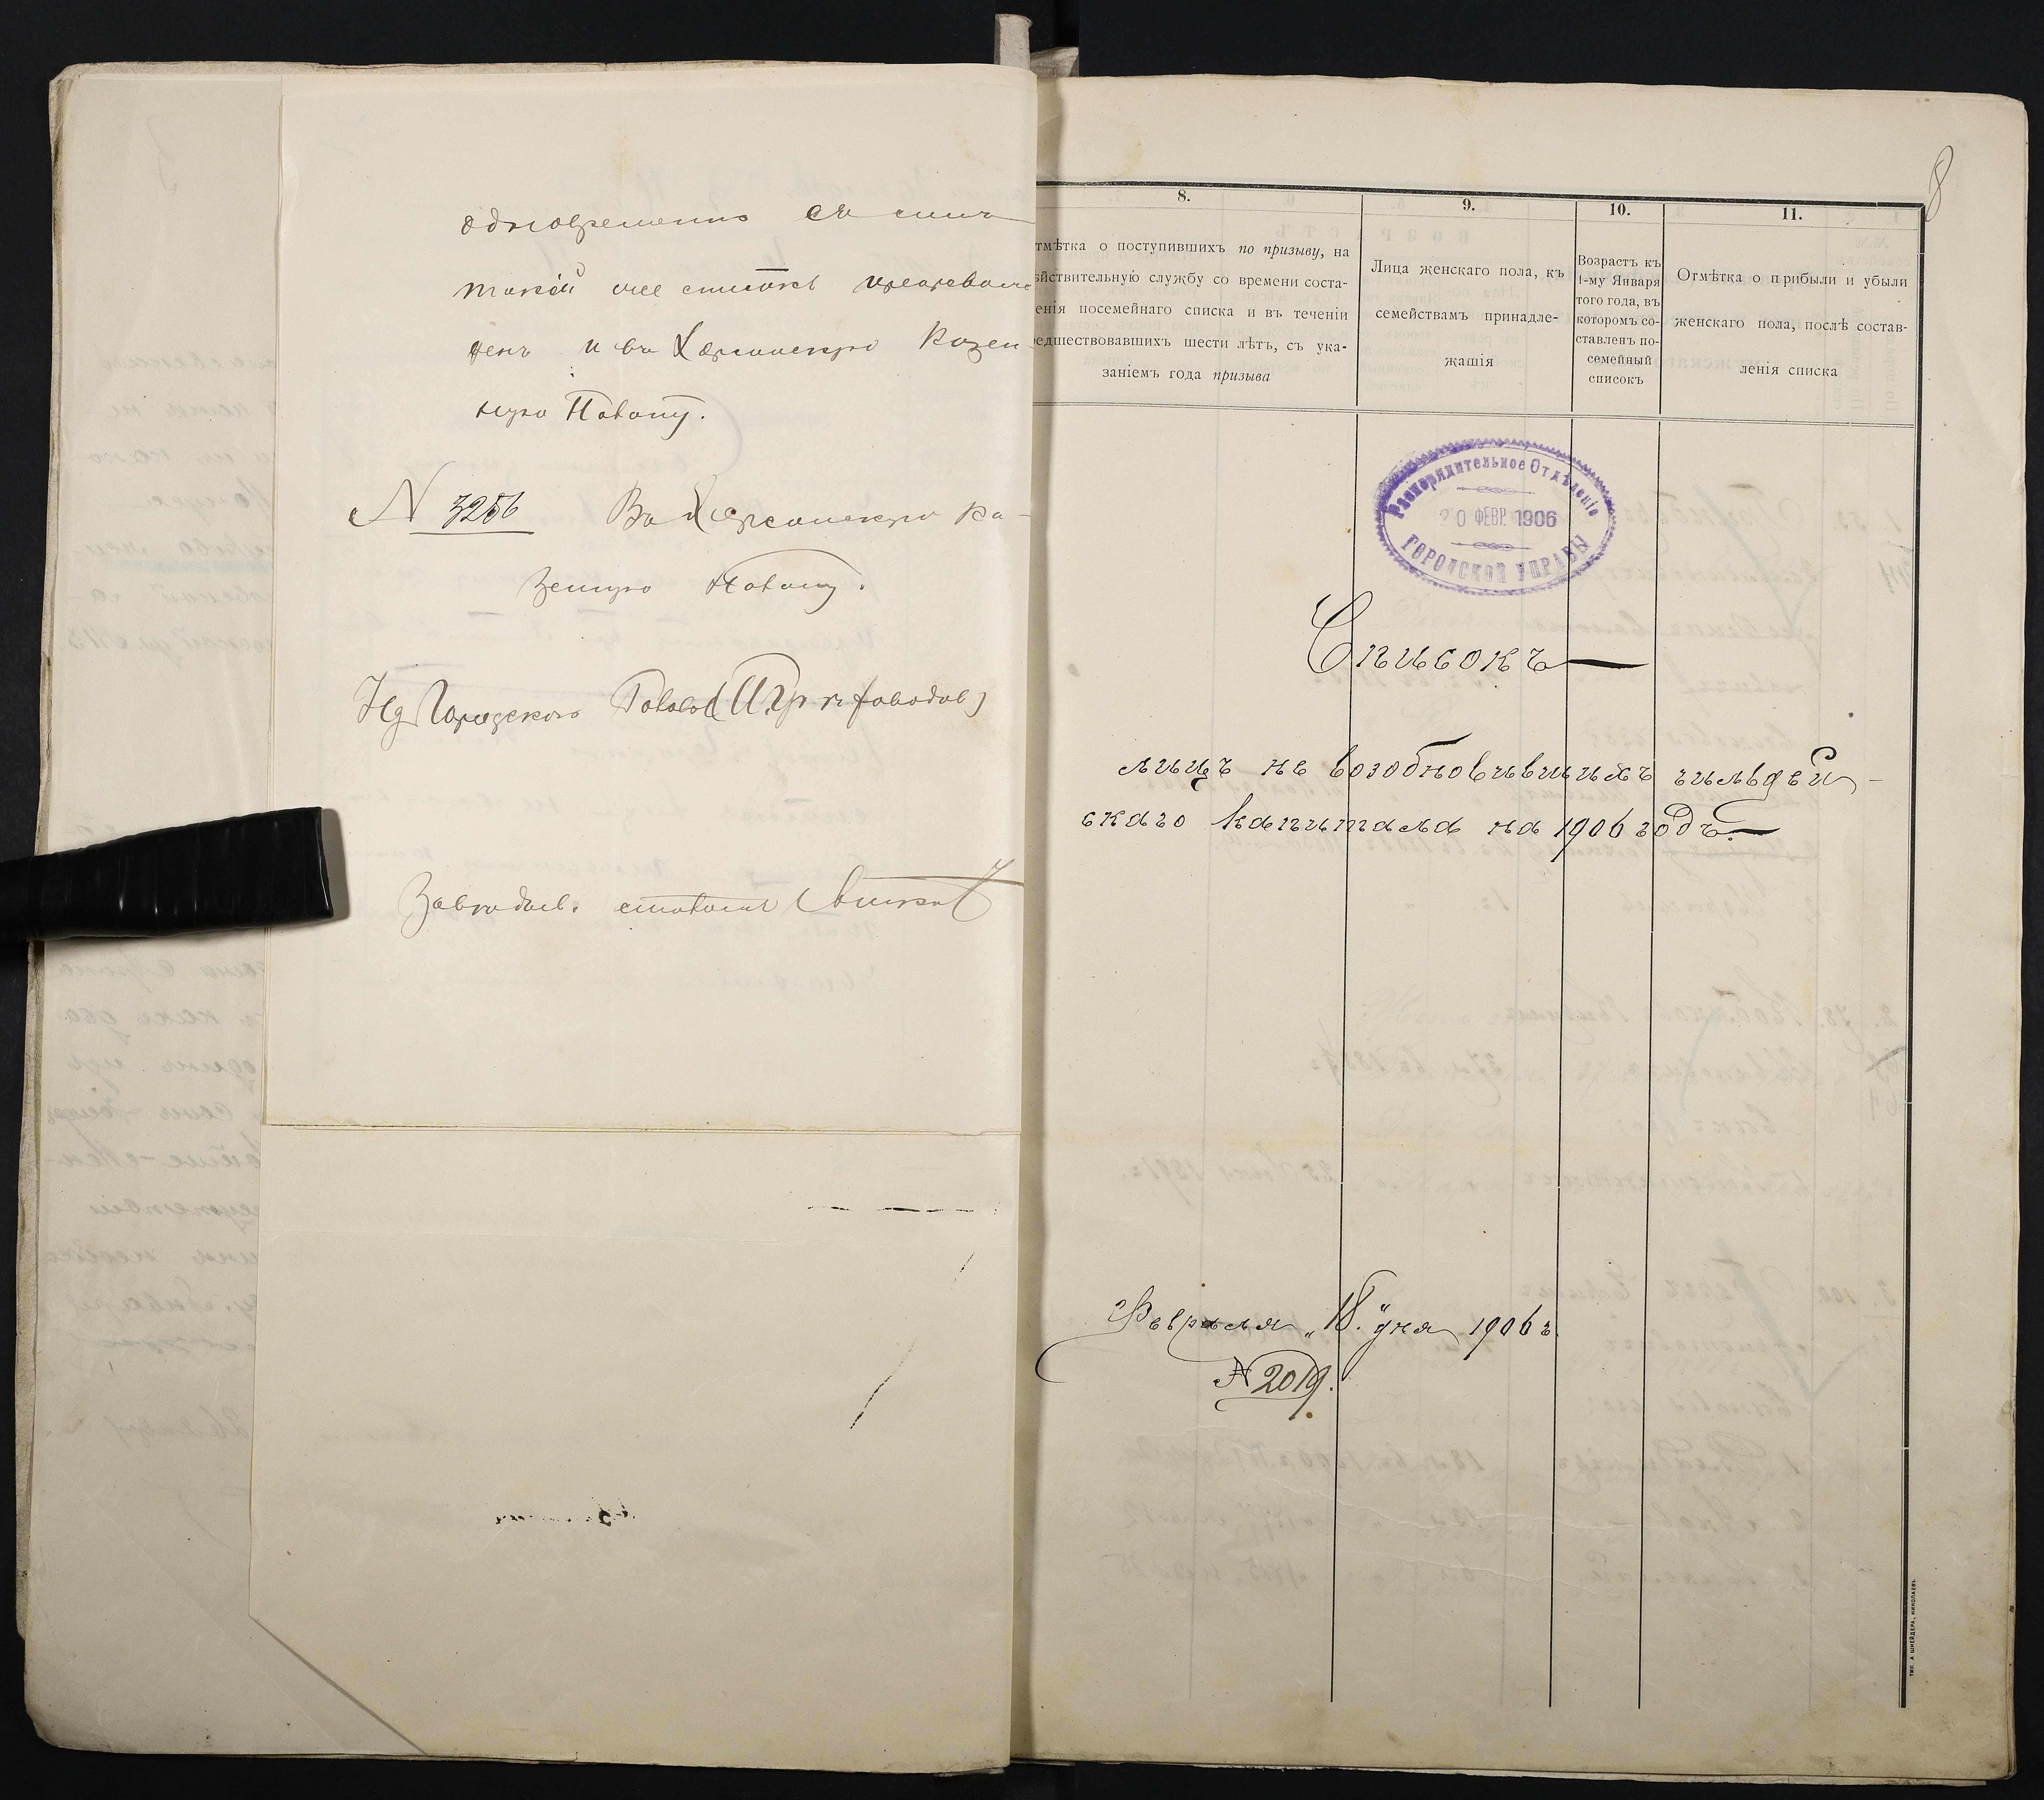 одновременно съ симъ
такой же списокъ препровож-
денъ и въ Херсонскую Казен-
ную Палату.
№ 3256 Въ Херсонскую Ка-
зенную Палату.
Городского Головы
Завѣдыв. столомъ
8
8.
9.
10.
11.
тмѣтка о поступившихъ по призыву, на
ѣйствительную службу со времени соста-
енія посемейнаго списка и въ теченіи
едшествовавшихъ шести лѣтъ, съ ука-
заніемъ года призыва
Лица женскаго пола, къ
семействамъ принадле-
жащія
Возрастъ къ
1-му Января
того года, въ
которомъ со-
ставленъ по-
семейный
списокъ
Отмѣтка о прибыли и убыли
женскаго пола, послѣ состав-
ленія списка
Распорядительное Отдѣленіе
20 ФЕВР. 1906
ГОРОДСКОЙ УПРАВЫ
Списокъ —
лицъ не возобновившихъ гильдей-
скаго капитала на 1906 годъ. —
Февраля „18" дня 1906 г.
№ 2019.
ТИП. А ШНЕЙДЕРА, НИКОЛАЕВЪ